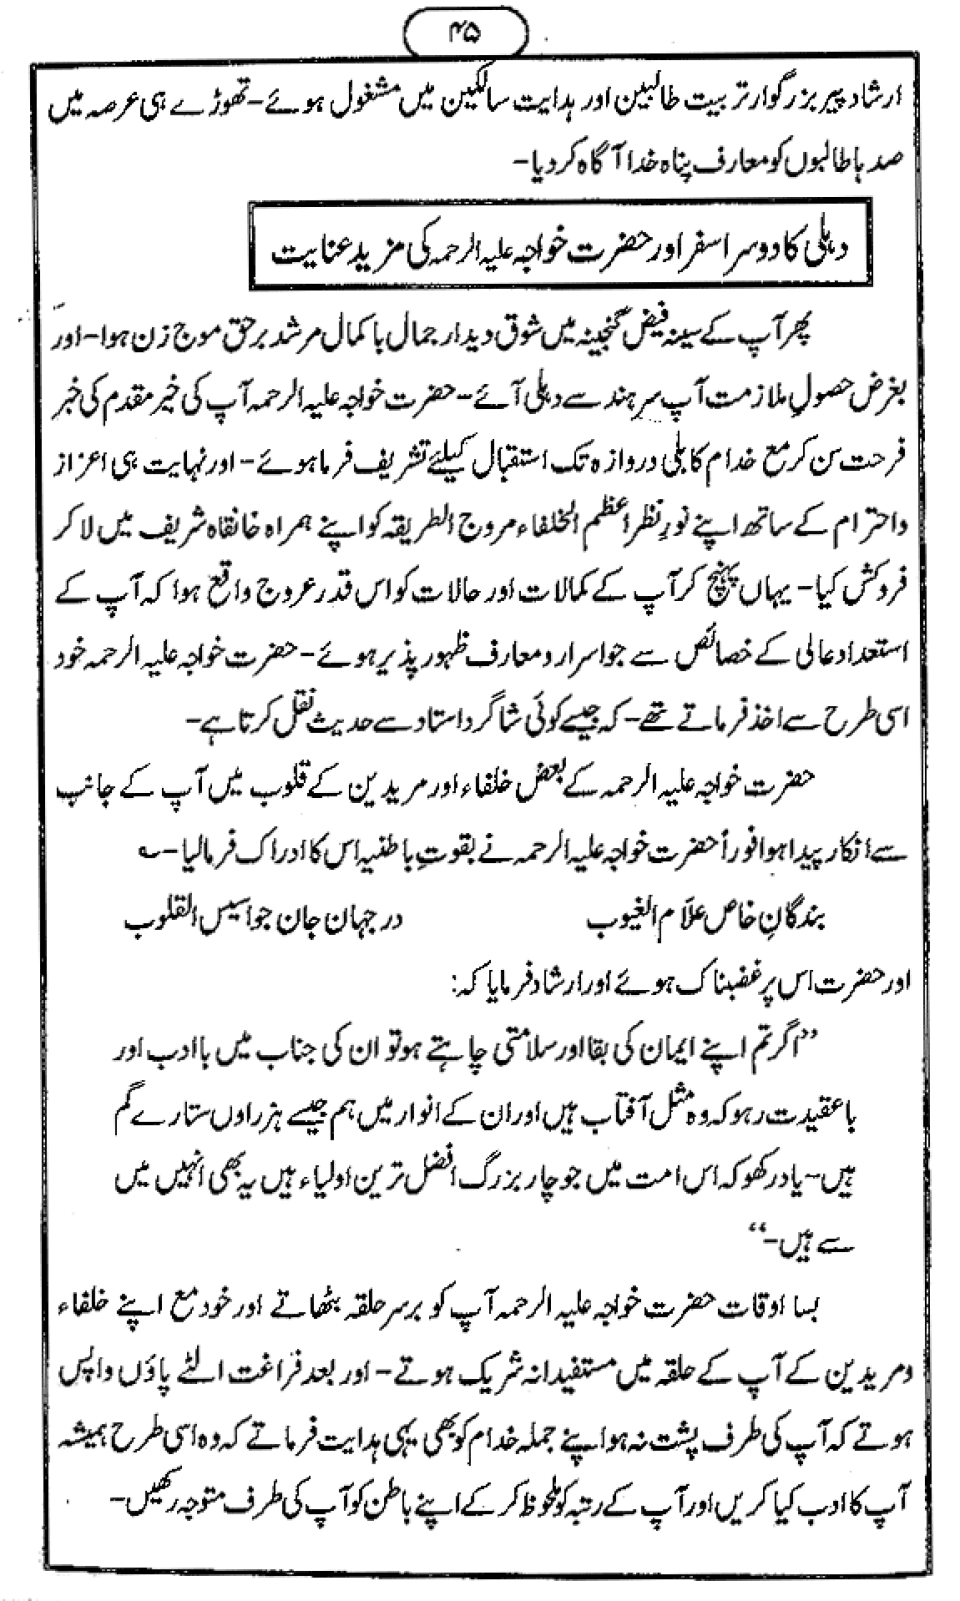 ۴۵
ارشاد پیر بزرگوار تربیت طالبین اور ہدایت سالکین میں مشغول ہوئے۔ تھوڑے ہی عرصہ میں
صدہا طالبوں کو معارف پناہ خدا آگاہ کر دیا۔
دہلی کا دوسرا سفر اور حضرت خواجہ علیہ الرحمہ کی مزید عنایت
پھر آپ کے سینہ فیض گنجینہ میں شوق دیدار جمال باکمال مرشد برحق موج زن ہوا۔ اور
بغرض حصولِ ملازمت آپ سرہند سے دہلی آئے۔ حضرت خواجہ علیہ الرحمہ آپ کی خیر مقدم کی خبر
فرحت سن کر مع خدام کابلی دروازہ تک استقبال کیلئے تشریف فرما ہوئے۔ اور نہایت ہی اعزاز
واحترام کے ساتھ اپنے نورِ نظر اعظم الخلفاء مروج الطریقہ کو اپنے ہمراہ خانقاہ شریف میں لا کر
فروکش کیا۔ یہاں پہنچ کر آپ کے کمالات اور حالات کو اس قدر عروج واقع ہوا کہ آپ کے
استعداد عالی کے خصائص سے جو اسرار و معارف ظہور پذیر ہوئے۔ حضرت خواجہ علیہ الرحمہ خود
اسی طرح سے اخذ فرماتے تھے۔ کہ جیسے کوئی شاگرد استاد سے حدیث نقل کرتا ہے۔
حضرت خواجہ علیہ الرحمہ کے بعض خلفاء اور مریدین کے قلوب میں آپ کے جانب
سے انکار پیدا ہوا فوراً حضرت خواجہ علیہ الرحمہ نے بقوتِ باطنیہ اس کا ادراک فرمالیا۔ ؎
بندگانِ خاص علاّم الغیوب درجہان جان جواسیس القلوب
اور حضرت اس پر غضبناک ہوئے اور ارشاد فرمایا کہ:
”اگر تم اپنے ایمان کی بقا اور سلامتی چاہتے ہو تو ان کی جناب میں باادب اور
باعقیدت رہو کہ وہ مثل آفتاب ہیں اور ان کے انوار میں ہم جیسے ہزراوں ستارے گم
ہیں۔ یاد رکھو کہ اس امت میں جو چار بزرگ افضل ترین اولیاء ہیں یہ بھی انہیں میں
سے ہیں۔“
بسا اوقات حضرت خواجہ علیہ الرحمہ آپ کو برسر حلقہ بٹھاتے اور خود مع اپنے خلفاء
ومریدین کے آپ کے حلقہ میں مستفیدانہ شریک ہوتے۔ اور بعد فراغت الٹے پاؤں واپس
ہوتے کہ آپ کی طرف پشت نہ ہو اپنے جملہ خدام کو بھی یہی ہدایت فرماتے کہ وہ اسی طرح ہمیشہ
آپ کا ادب کیا کریں اور آپ کے رتبہ کو ملحوظ کر کے اپنے باطن کو آپ کی طرف متوجہ رکھیں۔